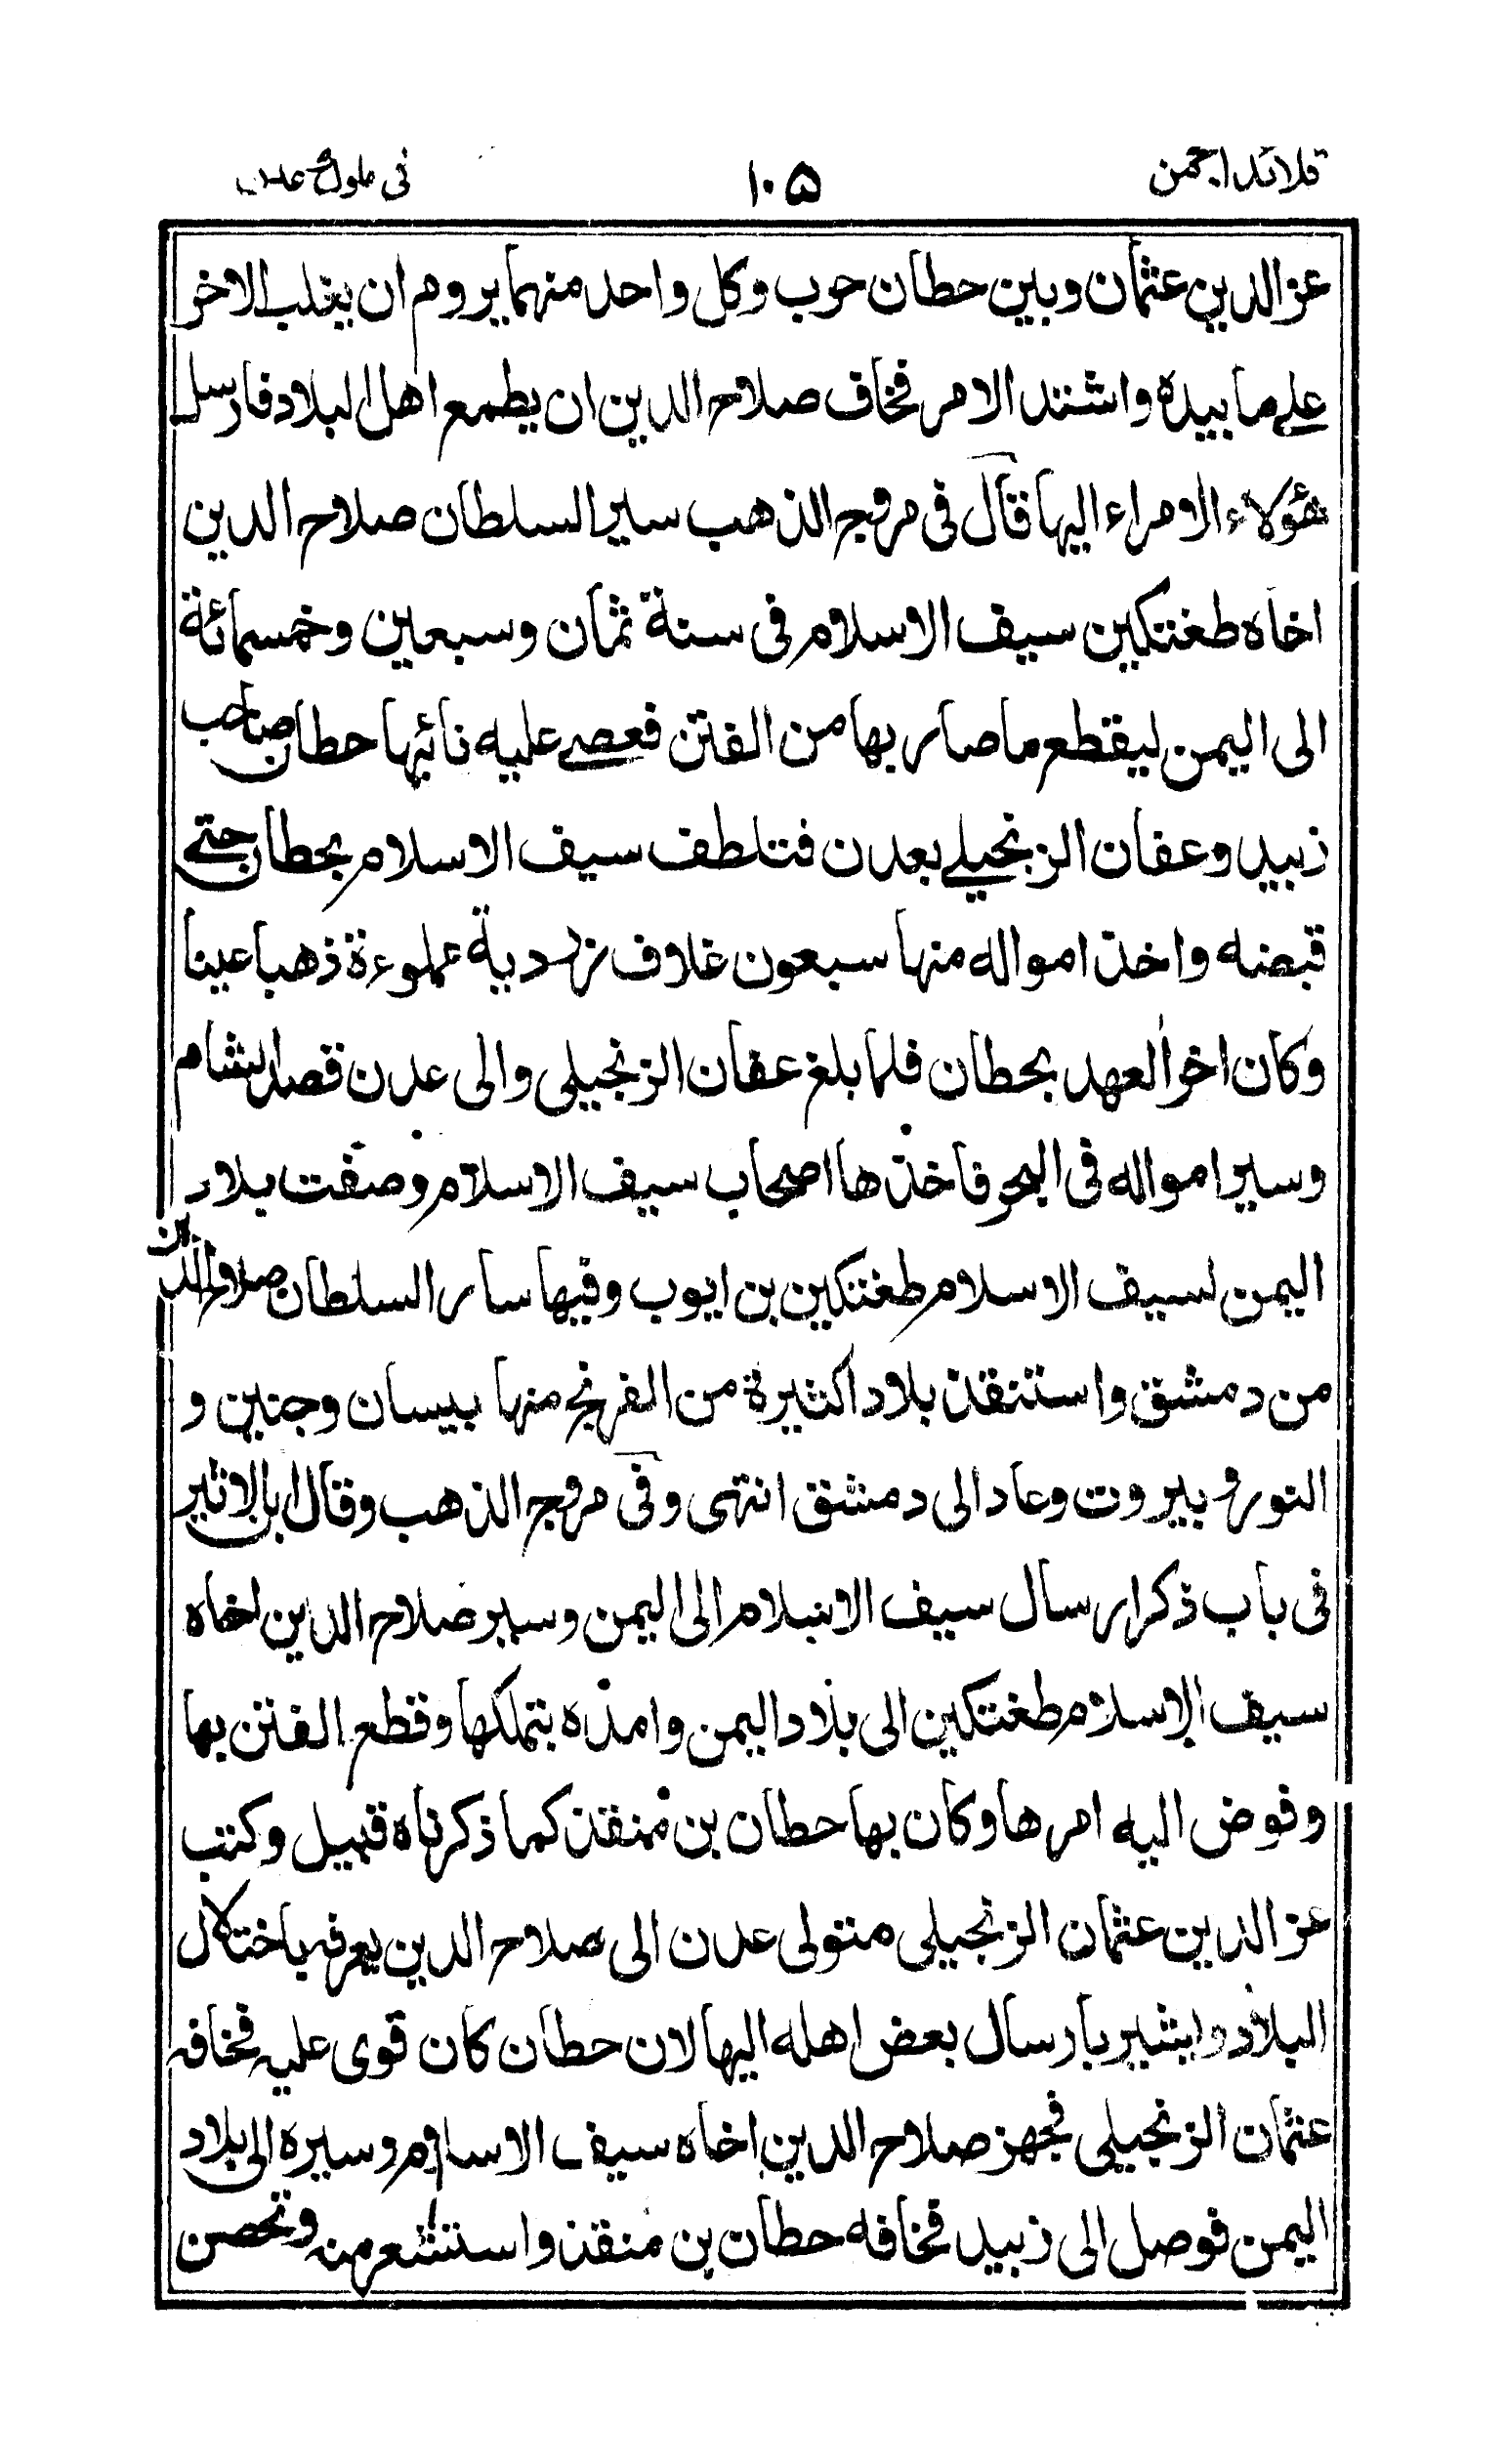 قلائد الجمن ١٠٥ فى ملوك عدن
عز الدين عثمان وبين حطان حرب وكل واحد منهما يروم ان يغلب الاخر
على ما بيده واشتد الامر فخاف صلاح الدين ان يطمع اهل البلاد فارسل
هؤلاء الامراء اليها قال فى مروج الذهب سير السلطان صلاح الدين
اخاه طغتكين سيف الاسلام فى سنة ثمان وسبعين وخمسمائة
الى اليمن ليقطع ما صار بها من الفتن فعصى عليه نائبها حطان صاحب
زبيد وعفان الزنجيلى بعدن فتلطف سيف الاسلام بحطان حتى
قبضه واخذ امواله منها سبعون غلاف زردية مملوءة ذهبا عينا
وكان اخر العهد بحطان فلما بلغ عفان الزنجيلى والى عدن قصد الشام
وسير امواله فى البحر فاخذها اصحاب سيف الاسلام وصفت بلاد
اليمن لسيف الاسلام طغتكين بن ايوب وفيها سار السلطان صلاح الدين
من دمشق واستنقذ بلادا كثيرة من الفرنج منها بيسان وجنين و
الثور وبيروت وعاد الى دمشق انتهى وفى مروج الذهب وقال ابن الاثير
فى باب ذكر ارسال سيف الاسلام الى اليمن وسير صلاح الدين اخاه
سيف الاسلام طغتكين الى بلاد اليمن وامره بتملكها وقطع الفتن بها
وفوض اليه امرها وكان بها حطان بن منقذ كما ذكرناه قبيل وكتب
عز الدين عثمان الزنجيلى متولى عدن الى صلاح الدين يعرفه باختلال
البلاد ويشير بارسال بعض اهله اليها لان حطان كان قوى عليه فخافه
عثمان الزنجيلى فجهز صلاح الدين اخاه سيف الاسلام وسيره الى بلاد
اليمن فوصل الى زبيد فخافه حطان بن منقذ واستشعر منه وتحصن